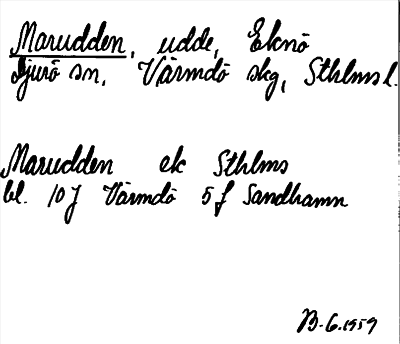 Marudden, udde, Eknö
Djurö sn, Värmdö skg, Sthlms l.
Marudden ek Sthlms
bl. 10 J Värmdö 5 f Sandhamn
B.G. 1959